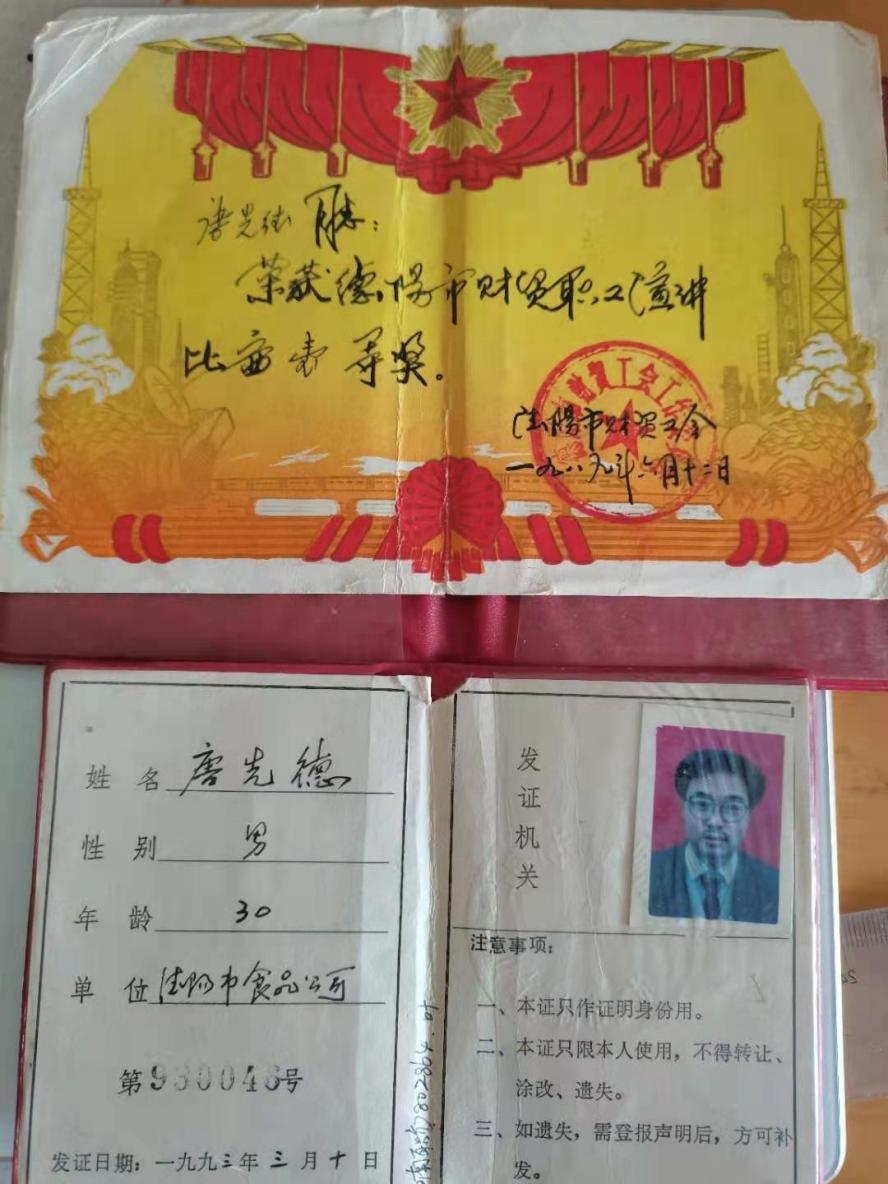 唐先德同志：
荣获德阳市财贸职工演讲
比赛叁等奖。
德阳市财贸工会
一九八九年六月十二日
姓名 唐先德
性别 男
年龄 30
单位 德阳市食品公司
第930046号
发证日期：一九九三年三月十日
发证机关
注意事项：
一、本证只作证明身份用。
二、本证只限本人使用，不得转让、
涂改、遗失。
三、如遗失，需登报声明后，方可补
发。